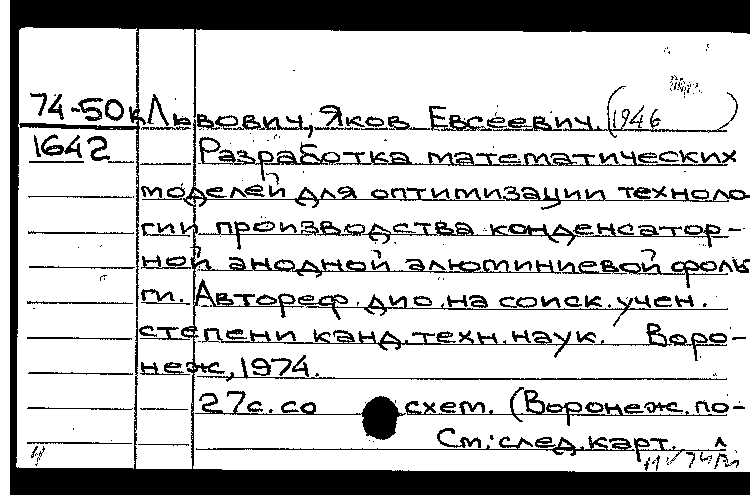 74-50к Львович, Яков Евсеевич. (1946 )
1642 Разработка математических
моделей для оптимизации техноло-
гии производства конденсатор-
ной анодной алюминиевой фоль
ги. Автореф. дис. на соиск. учен.
степени канд. техн. наук. Воро-
неж, 1974.
27с. со схем. (Воронеж. по-
См: след. карт. л